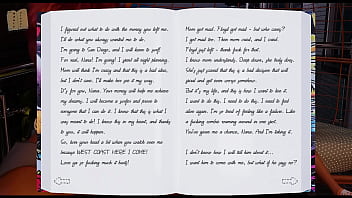 I figured out what to do with the money you left me.
I'll do what you always wanted me to do.
I'm going to San Diego, and I will learn to surf!
For real, Nana! I'm going! I spent all night planning.
Mom will think I'm crazy and that this is a bad idea,
but I don't care. I'll make her pay it my way.
It's for you, Nana. Your money will help me achieve
my dreams. I will become a surfer and prove to
everyone that I can do it. I know that this is what I
was meant to do! I know this in my heart, and thanks
to you, it will happen.
So, turn your head a bit when you watch over me
because WEST COAST HERE I COME!
Love ya so fucking much it hurts!
Mom got mad. Floyd got mad - but who cares?
I got mad too. Then mom cried, and I cried.
Floyd just left - thank fuck for that.
I know mom understands. Deep down, she truly does.
She's just scared that this is a bad decision that will
and get even worse somehow.
But it's my life, and this is how I want to live it.
I want to do this, I need to do this. I need to feel
alive again. I'm so tired of feeling like a failure. Like
a fucking zombie running around in one spot.
You've given me a chance, Nana. And I'm taking it.
I don't know how I will tell him about it...
I want him to come with me, but what if he says no?